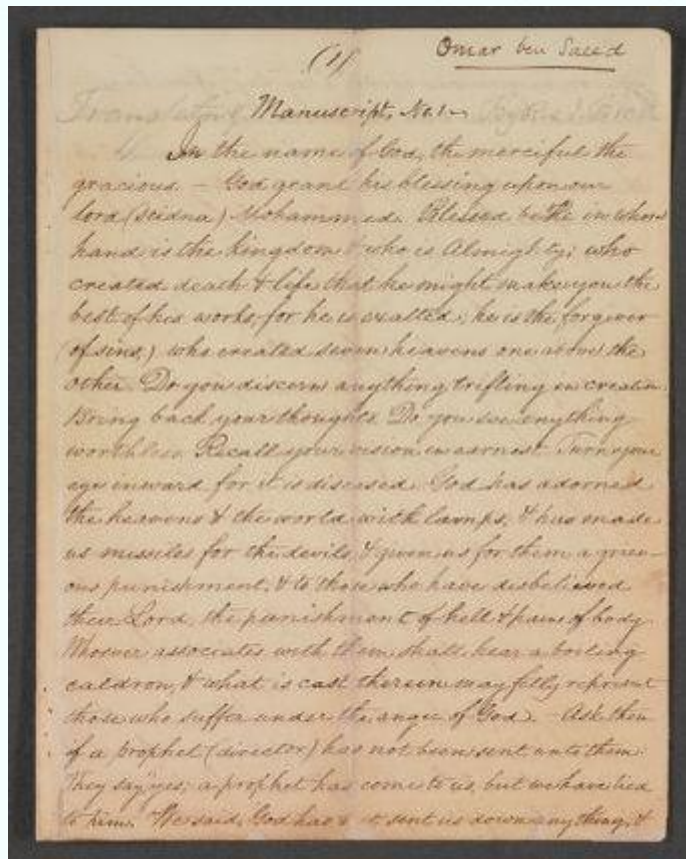 Omar ben Saeed
(1)
Manuscript, No. 1
In the name of God, the merciful the
gracious. — God grant his blessing upon our
lord (Seidna) Mohammed. Blessed be He in whose
hand is the kingdom & who is Almighty; who
created death & life that he might make you the
best of his works, for he is exalted; he is the forgiver
(of sins,) who created seven heavens one above the
other. Do you discern anything trifling in creation.
Bring back your thoughts. Do you see anything
worthless Recall your vision in earnest. Turn your
eye inward for it is diseased. God has adorned
the heavens & the world with lamps, & has made
us missiles for the devils, & given us for them a griev-
ous punishment, & to those who have disbelieved
their Lord, the punishment of hell & pains of body
Whoever associates with them shall hear a boiling
caldron, & what is cast therein may fitly represent
those who suffer under the anger of God. — Ask them
if a prophet (director) has not been sent unto them.
They say "yes; a prophet has come to us, but we have lied
to him. We said, God has not sent us down anything, &